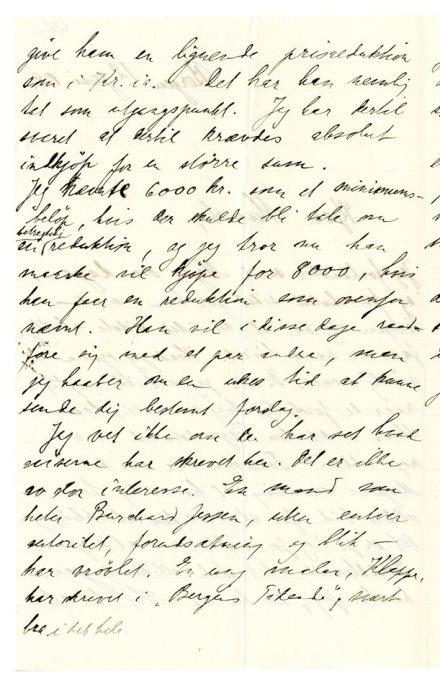 give ham en lignende prisreduktion
som i Kr.ia. Det har han nemlig
tat som utgangspunkt. Jeg har dertil
svaret at dertil krævdes absolut
indkjøp for en større sum.
Jeg nævnte 6000 kr. som et minimums-
beløp, hvis der skulde bli tale om
betydelig
en reduktion, og jeg tror nu han
maaske vil kjøpe for 8000, hvis
han faar en reduktion som ovenfor
nævnt. Han vil i disse dage raad-
føre sig med et par andre, men
jeg haaber om en ukes tid at kunne
sende dig bestemt forslag.
Jeg vet ikke om du har set hvad
aviserne har skrevet her. Det er ikke
av stor interesse. En mand som
heter Burchard Jessen, uten enhver
autoritet, forutsætning og blik –
har vrøvlet. En ung maler, Kleppe,
har skrevet i "Bergens Tidende", svært
bra i det hele.